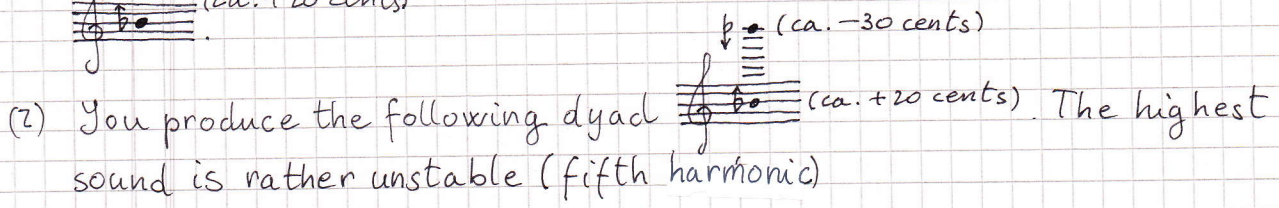 (ca. +20 cents)
.
(ca. -30 cents)
(2) You produce the following dyad (ca. +20 cents). The highest
sound is rather unstable (fifth harmonic)